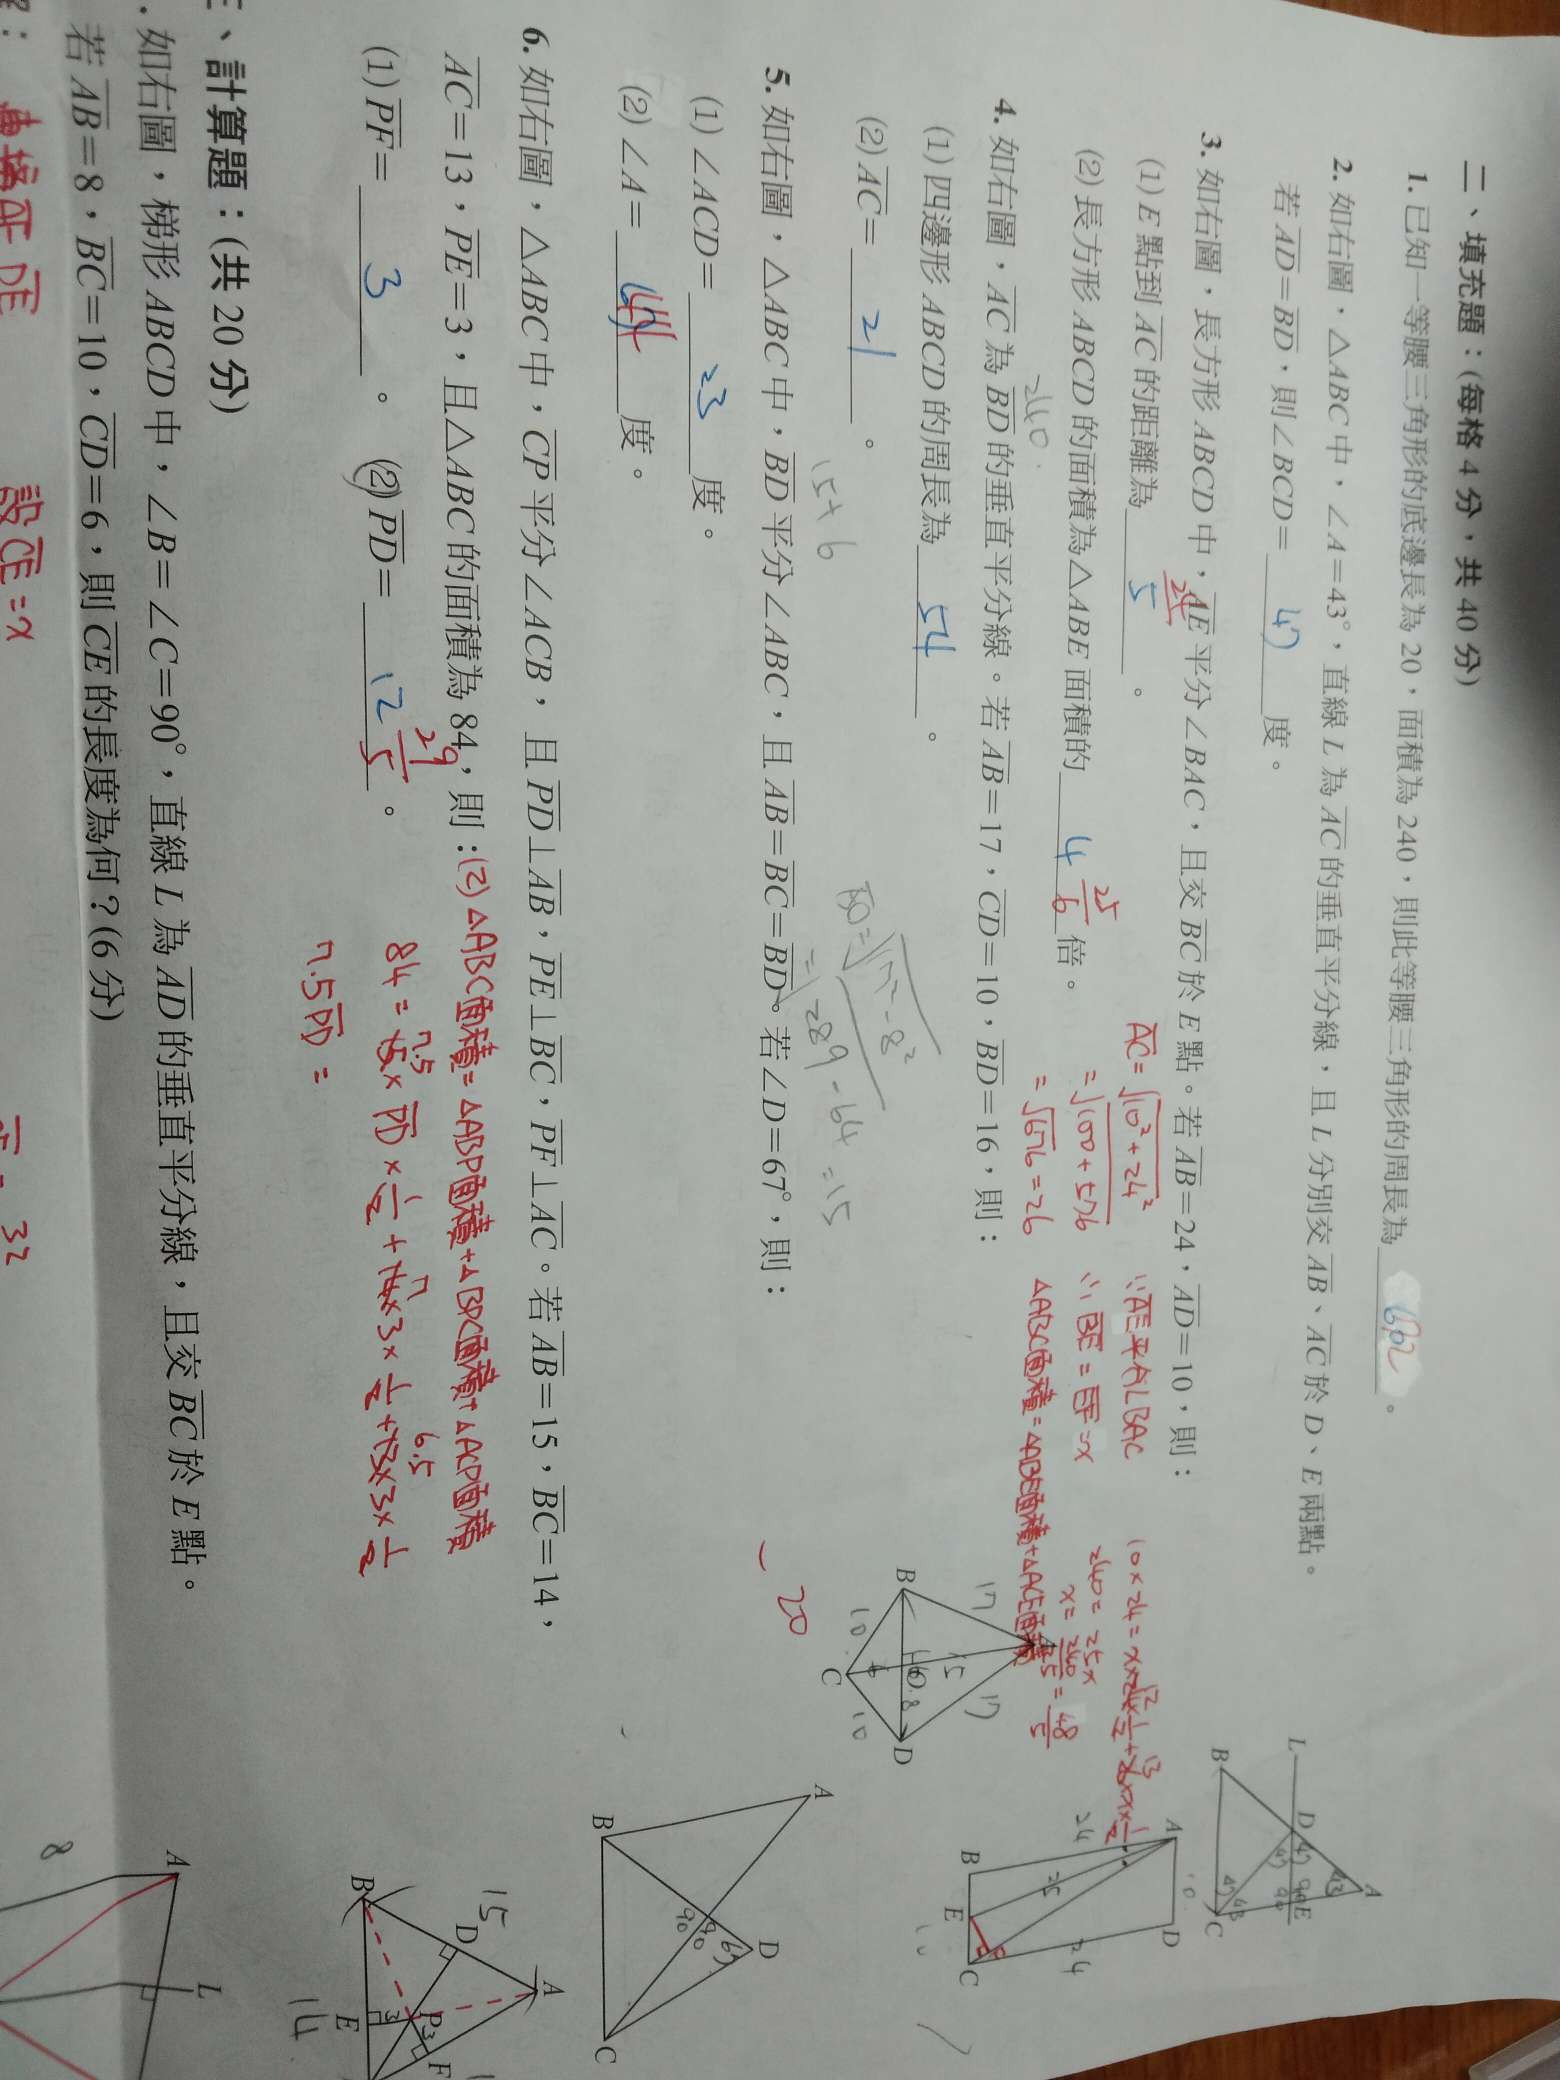 二、填充題：(每格 4 分，共 40 分)
1. 已知一等腰三角形的底邊長為 20，面積為 240，則此等腰三角形的周長為 。
2. 如右圖，△ABC 中，∠A＝43°，直線 L 為 AC 的垂直平分線，且 L 分別交 AB、AC 於 D、E 兩點。
若 AD＝BD，則∠BCD＝ 47 度。
L D A 43 47 47 90 90 E B 47 43 C
3. 如右圖，長方形 ABCD 中，AE 平分 ∠BAC，且交 BC 於 E 點。若 AB＝24，AD＝10，則：
(1) E 點到 AC 的距離為 5 。
24
(2) 長方形 ABCD 的面積為 △ABE 面積的 4 25/6 倍。
240.
AC = √10²+24²
= √100+576
= √676 = 26
∵ AE平分∠BAC
∵ BE = EF = x
△ABC面積 = △ABE面積 + △ACE面積
240 = 25x
x = 240/25 = 48/5
A D 10 24 24 25 B E C 10
4. 如右圖，AC 為 BD 的垂直平分線。若 AB＝17，CD＝10，BD＝16，則：
(1) 四邊形 ABCD 的周長為 54 。
(2) AC＝ 21 。
15+6
√17²-8²
= √289-64 = 15
A 17 17 15 B 8 D 10 6 10 C
5. 如右圖，△ABC 中，BD 平分 ∠ABC，且 AB＝BC＝BD。若 ∠D＝67°，則：
(1) ∠ACD＝ 23 度。
(2) ∠A＝ 度。
-20
A D 67 90 90 B C
6. 如右圖，△ABC 中，CP 平分 ∠ACB，且 PD⊥AB，PE⊥BC，PF⊥AC。若 AB＝15，BC＝14，
AC＝13，PE＝3，且△ABC 的面積為 84，則：
(1) PF＝ 3 。 (2) PD＝ 12 29/5 。
(2) △ABC面積 = △ABP面積 + △BPC面積 + △ACP面積
84 = 15 7.5 × PD × 1/2 + 14 7 × 3 × 1/2 + 13 6.5 × 3 × 1/2
7.5PD =
A 15 D P 3 3 F B E 14
三、計算題：(共 20 分)
. 如右圖，梯形 ABCD 中，∠B＝∠C＝90°，直線 L 為 AD 的垂直平分線，且交 BC 於 E 點。
若 AB＝8，BC＝10，CD＝6，則 CE 的長度為何？(6 分)
A L 8
DE
設CE = x
32